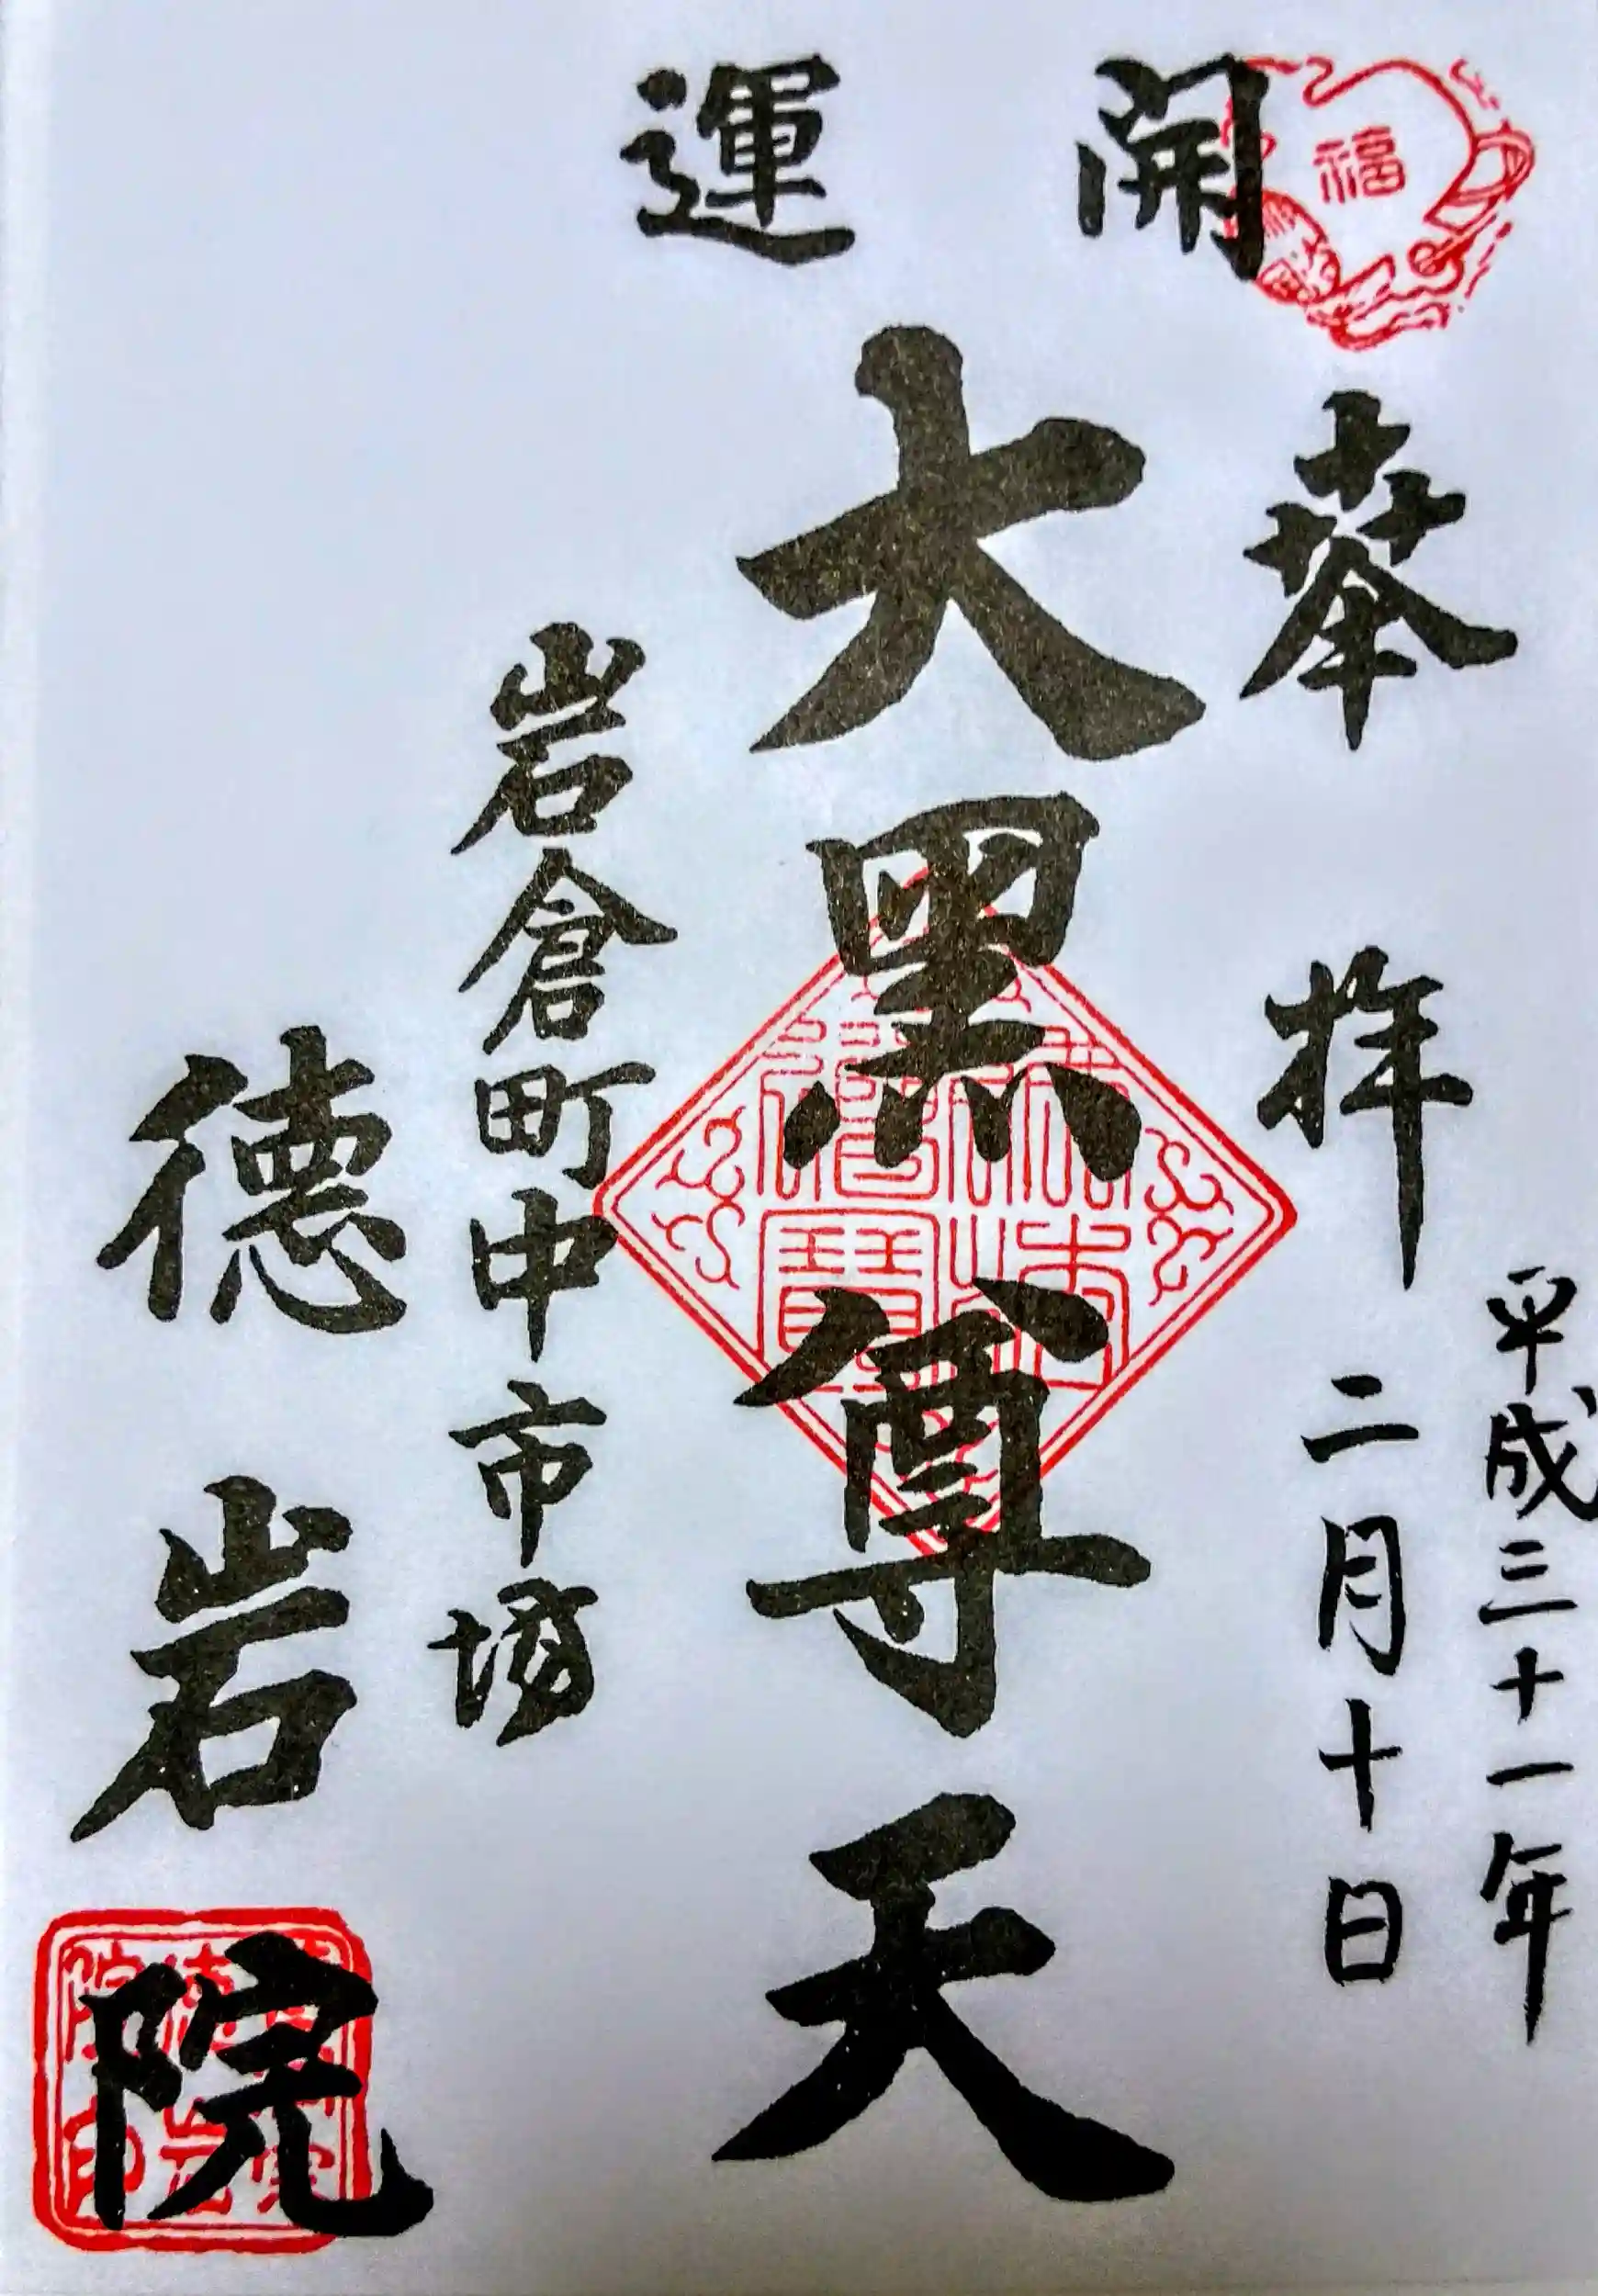 開運
福
奉拝
平成三十一年
二月十日
大黒尊天
佛法僧寶
岩倉町中市場
徳岩院